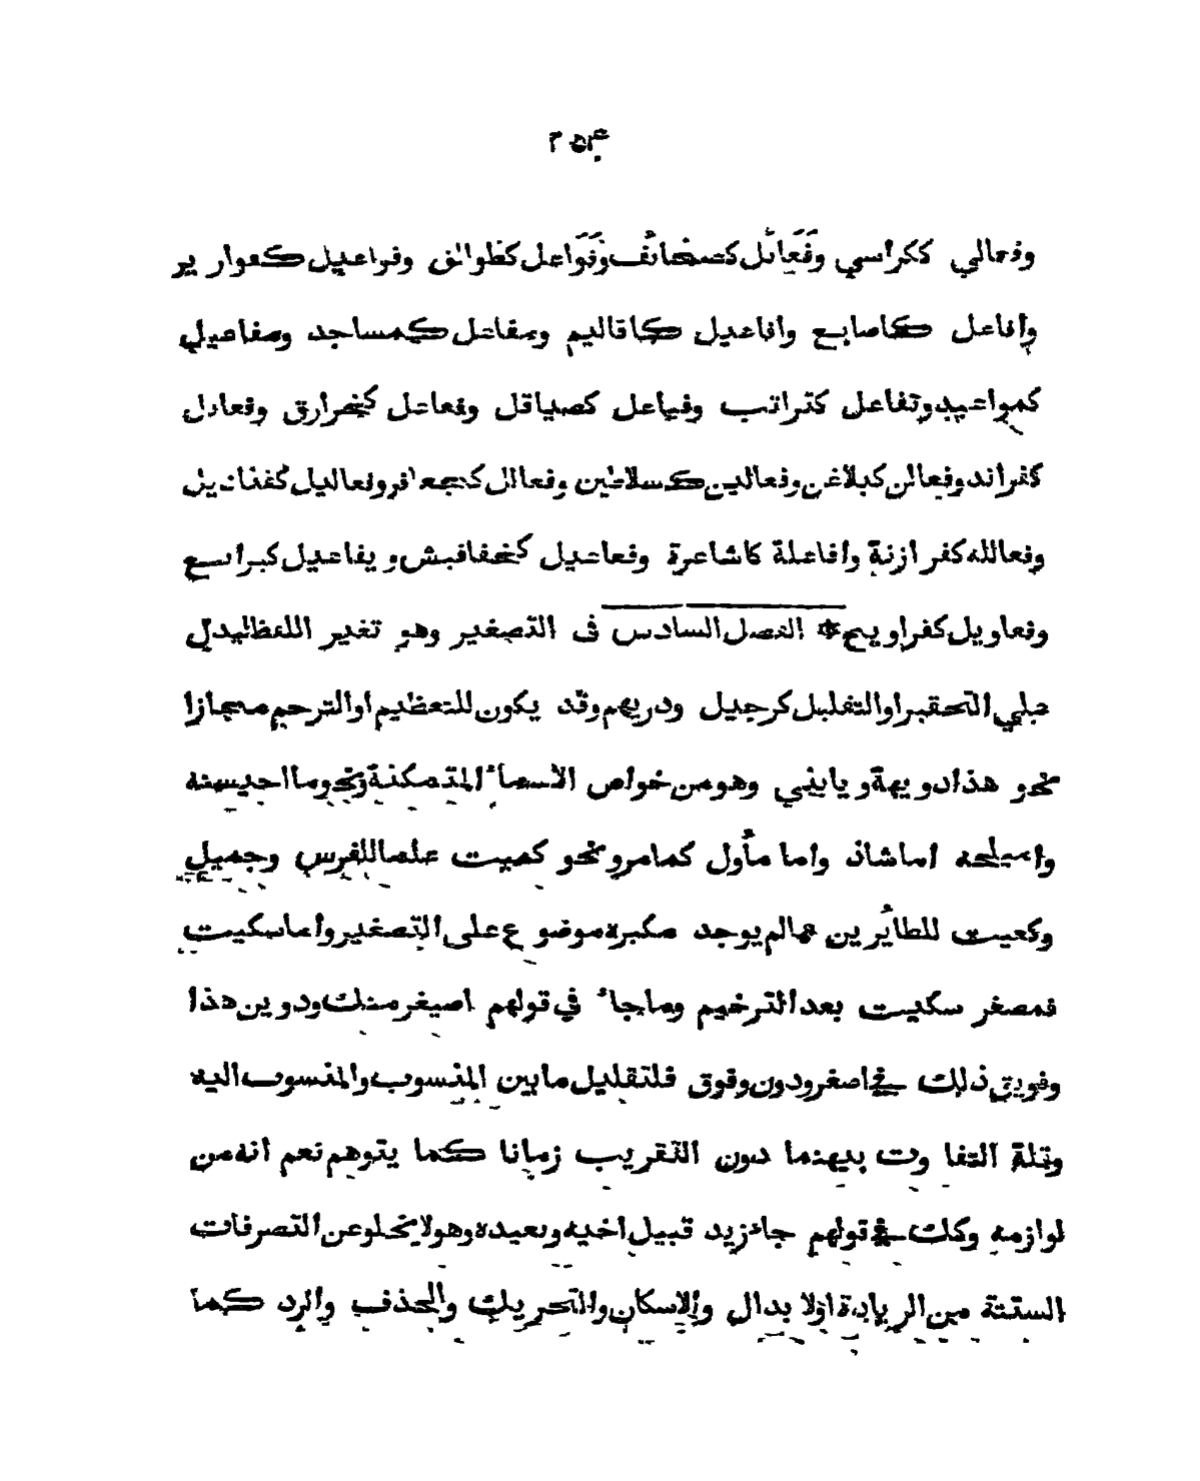 ٢٥٤
وفعالي ككراسي وفَعَائل كصحائف وفَوَاعل كطوالق وفواعيل كعوارير
وافاعل كاصابع وافاعيل كاقاليم ومفاعل كمساجد ومفاعيل
كمواعيد وتفاعل كتراتب وفياعل كصياقل وفعاعل كخرارق وفعادل
كقراند وفعالن كبلاغن وفعالين كسلاطين وفعالل كجعافر وفعاليل كقناديل
وفعالله كفرازنة وافاعلة كاشاعرة وفعاعيل كخفافيش ويفاعيل كيرابيع
وفعاويل كقراويح * الفصل السادس فى التصغير وهو تغير اللفظ ليدل
على التحقير او التقليل كرجيل ودريهم وقد يكون للتعظيم او الترحم مجازا
نحو هذا دويهة ويا بني وهو من خواص الاسماء المتمكنة ونحو ما احيسنه
واميلحه اما شاذ واما مأول كما مر ونحو كميت علما للفرس وجميل
وكعيت للطائرين مما لم يوجد مكبره موضوع على التصغير واما سكيت
فمصغر سكيت بعد الترخيم وما جاء في قولهم اصيغر منك ودوين هذا
وفويق ذلك في اصغر ودون وفوق فلتقليل ما بين المنسوب والمنسوب اليه
وقلة التفاوت بينهما دون التقريب زمانا كما يتوهم نعم انه من
لوازمه وكك في قولهم جاء زيد قبيل اخيه وبعيده وهو لا يخلو عن التصرفات
الستة من الزيادة او الابدال والاسكان والتحريك والحذف والرد كما